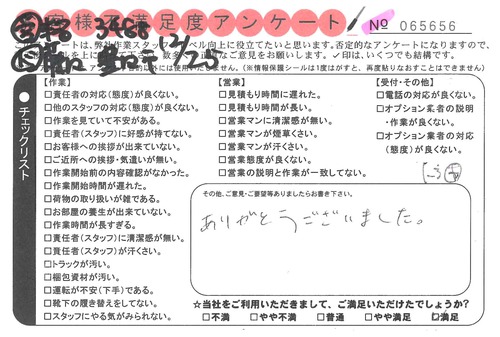 様 満足度アンケート
No 065656
は、弊社作業スタッフ
ベル向上に役立てたいと思います。否定的なアンケートになりますので、
見をお願いします。✓印は、いくつでも結構です。
目的以外には使用いたしません。（※情報保護シールは1度はがすと、再度貼りなおすことはできません）
チェックリスト
【作業】
□責任者の対応（態度）が良くない。
□他のスタッフの対応（態度）が良くない。
□作業を見ていて不安がある。
□責任者（スタッフ）に好感が持てない。
□お客様への挨拶が出来ていない。
□ご近所への挨拶・気遣いが無い。
□作業開始前の内容確認がなかった。
□作業開始時間が遅れた。
□荷物の取り扱いが雑である。
□お部屋の養生が出来ていない。
□作業時間が長すぎる。
□責任者（スタッフ）に清潔感が無い。
□責任者（スタッフ）が汗くさい。
□トラックが汚い。
□梱包資材が汚い。
□運転が不安（下手）である。
□靴下の履き替えをしてない。
□スタッフにやる気がみられない。
【営業】
□見積もり時間に遅れた。
□見積もり時間が長い。
□営業マンに清潔感が無い。
□営業マンが煙草くさい。
□営業マンが汗くさい。
□営業態度が良くない。
□営業の説明と作業が一致してない。
【受付・その他】
□電話の対応が良くない。
□オプション業者の説明
・作業が良くない。
□オプション業者の対応
（態度）が良くない。
その他、ご意見・ご要望等ありましたらお書き下さい。
ありがとうございました。
☆当社をご利用いただきまして、ご満足いただけたでしょうか？
□不満 □やや不満 □普通 □やや満足 ☑満足